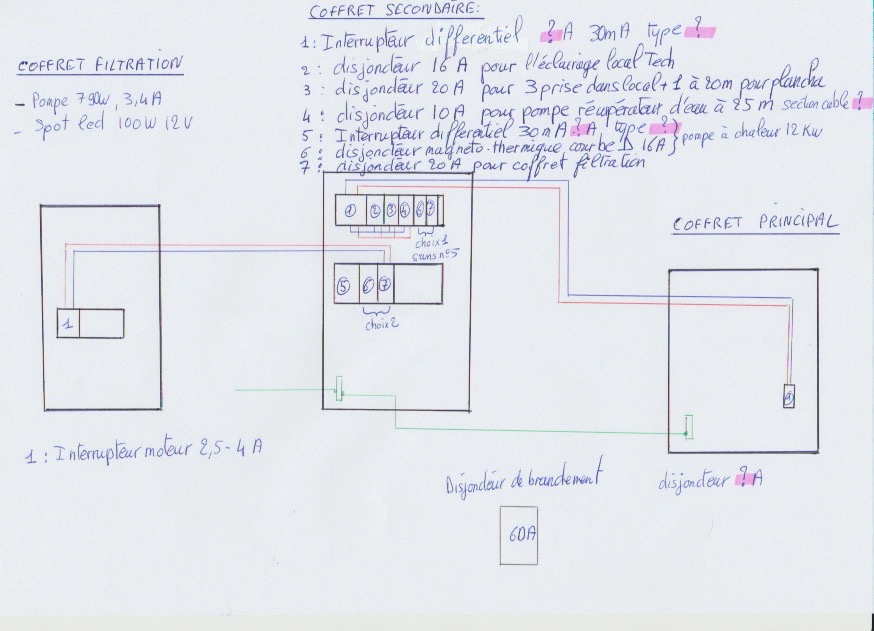 COFFRET SECONDAIRE:
1: Interrupteur differentiel ? A 30mA type ?
2: disjondeur 16 A pour l'éclairage local Tech
3: disjondeur 20A pour 3 prise dans local + 1 à 20m pour plancha
4: disjondeur 10A pour pompe récupérateur d'eau à 25 m section cable ?
5: Interrupteur differentiel 30mA ? A, type ?
6: disjondeur magneto-thermique courbe D 16A } pompe à chaleur 12 Kw
7: disjondeur 20A pour coffret filtration
COFFRET FILTRATION
- Pompe 790w, 3,4A
- Spot led 100W 12V
COFFRET PRINCIPAL
1 2 3 4 6 7
choix 1
sans n°5
5 6 7
choix 2
1
1: Interrupteur moteur 2,5-4 A
Disjondeur de brandement
60A
disjoncteur ? A